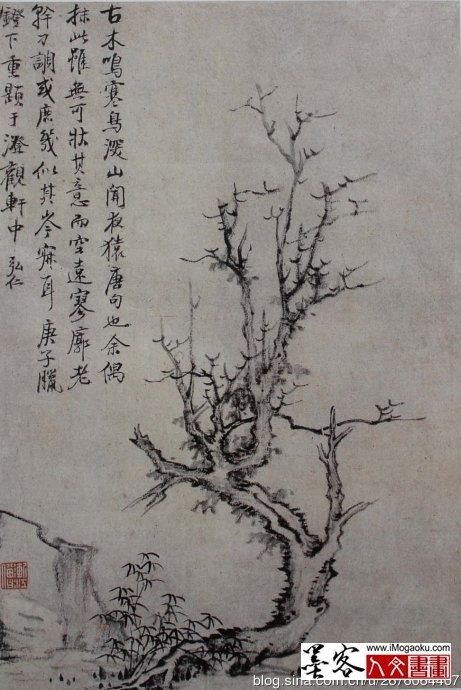 古木鳴寒鳥深山聞夜猿唐句也余偶
抹此雖無可狀其意而空遠寥廓老
幹刁調或庶幾似其岑寂耳庚子臘
鐙下重題于澄觀軒中 弘仁
墨客
www.iMogaoku.com
人文書畫
blog.sina.com.cn/u/2676064407